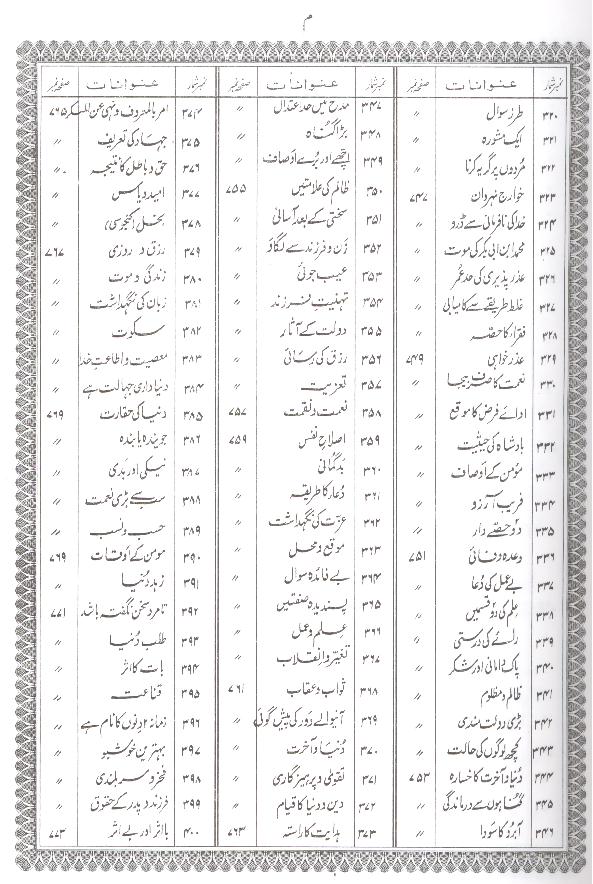 م
نمبر شمار عنوانات صفحہ نمبر
۳۲۰ طرز سوال 〃
۳۲۱ ایک مشورہ 〃
۳۲۲ مُردوں پر گریہ کرنا 〃
۳۲۳ خوارج نہروان ۷۴۷
۳۲۴ خدا کی نافرمانی سے ڈرو 〃
۳۲۵ محمد ابن ابی بکر کی موت 〃
۳۲۶ عذر پذیری کی حدِ عمر 〃
۳۲۷ غلط طریقے سے کامیابی 〃
۳۲۸ فقراء کا حصہ 〃
۳۲۹ عذر خواہی ۷۴۹
۳۳۰ نعمت کا صرف بیجا 〃
۳۳۱ ادائے فرض کا موقع 〃
۳۳۲ بادشاہ کی حیثیت 〃
۳۳۳ مؤمن کے اوصاف 〃
۳۳۴ فریب آرزو 〃
۳۳۵ دو حصے دار 〃
۳۳۶ وعدہ وفائی ۷۵۱
۳۳۷ بے عمل کی دُعا 〃
۳۳۸ علم کی دو قسمیں 〃
۳۳۹ رائے کی درستی 〃
۳۴۰ پاک دامانی اور شکر 〃
۳۴۱ ظالم و مظلوم 〃
۳۴۲ بڑی دولت مندی 〃
۳۴۳ کچھ لوگوں کی حالت 〃
۳۴۴ دُنیا و آخرت کا خسارہ ۷۵۳
۳۴۵ گناہوں سے درماندگی 〃
۳۴۶ آبرو کا سودا 〃
نمبر شمار عنوانات صفحہ نمبر
۳۴۷ مدح میں حد اعتدال 〃
۳۴۸ بڑا گناہ 〃
۳۴۹ اچھے اور بُرے اوصاف 〃
۳۵۰ ظالم کی علامتیں ۷۵۵
۳۵۱ سختی کے بعد آسانی 〃
۳۵۲ زن و فرزند سے لگاؤ 〃
۳۵۳ عیب جوئی 〃
۳۵۴ تہنیتِ فرزند 〃
۳۵۵ دولت کے آثار 〃
۳۵۶ رزق کی رسائی 〃
۳۵۷ تعزیت 〃
۳۵۸ نعمت و نقمت ۷۵۷
۳۵۹ اصلاحِ نفس ۷۵۹
۳۶۰ بدگمانی 〃
۳۶۱ دُعا کا طریقہ 〃
۳۶۲ عزت کی نگہداشت 〃
۳۶۳ موقع و محل 〃
۳۶۴ بے فائدہ سوال 〃
۳۶۵ پسندیدہ صفتیں 〃
۳۶۶ علم و عمل 〃
۳۶۷ تغیر و انقلاب 〃
۳۶۸ ثواب و عقاب ۷۶۱
۳۶۹ آنیوالے دَور کی پیش گوئی 〃
۳۷۰ دُنیا و آخرت 〃
۳۷۱ تقویٰ و پرہیزگاری 〃
۳۷۲ دین و دنیا کا قیام 〃
۳۷۳ ہدایت کا راستہ ۷۶۳
نمبر شمار عنوانات صفحہ نمبر
۳۷۴ امر بالمعروف و نہی عن المنکر ۷۶۵
۳۷۵ جہاد کی تعریف 〃
۳۷۶ حق و باطل کا نتیجہ 〃
۳۷۷ امید و یاس 〃
۳۷۸ بخل (کنجوسی) 〃
۳۷۹ رزق و روزی ۷۶۷
۳۸۰ زندگی و موت 〃
۳۸۱ زبان کی نگہداشت 〃
۳۸۲ سکوت 〃
۳۸۳ معصیت و اطاعتِ خدا 〃
۳۸۴ دنیا داری جہالت ہے 〃
۳۸۵ دنیا کی حقارت ۷۶۹
۳۸۶ جویندہ یابندہ 〃
۳۸۷ نیکی اور بدی 〃
۳۸۸ سب سے بڑی نعمت 〃
۳۸۹ حسب و نسب 〃
۳۹۰ مومن کے اوقات ۷۶۹
۳۹۱ زہدِ دُنیا 〃
۳۹۲ تا مرد سخن نگفتہ باشد ۷۷۱
۳۹۳ طلب دُنیا 〃
۳۹۴ بات کا اثر 〃
۳۹۵ قناعت 〃
۳۹۶ زمانہ ۲ دنوں کا نام ہے 〃
۳۹۷ بہترین خوشبو 〃
۳۹۸ فخر و سربلندی 〃
۳۹۹ فرزند و پدر کے حقوق 〃
۴۰۰ بااثر اور بے اثر ۷۷۳